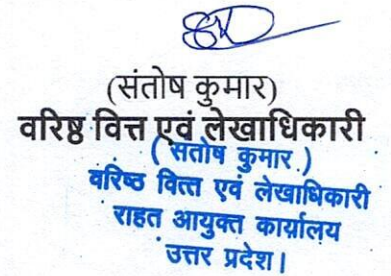 (संतोष कुमार)
वरिष्ठ वित्त एवं लेखाधिकारी
( सतोष कुमार )
वरिष्ठ वित्त एवं लेखाधिकारी
राहत आयुक्त कार्यालय
उत्तर प्रदेश।